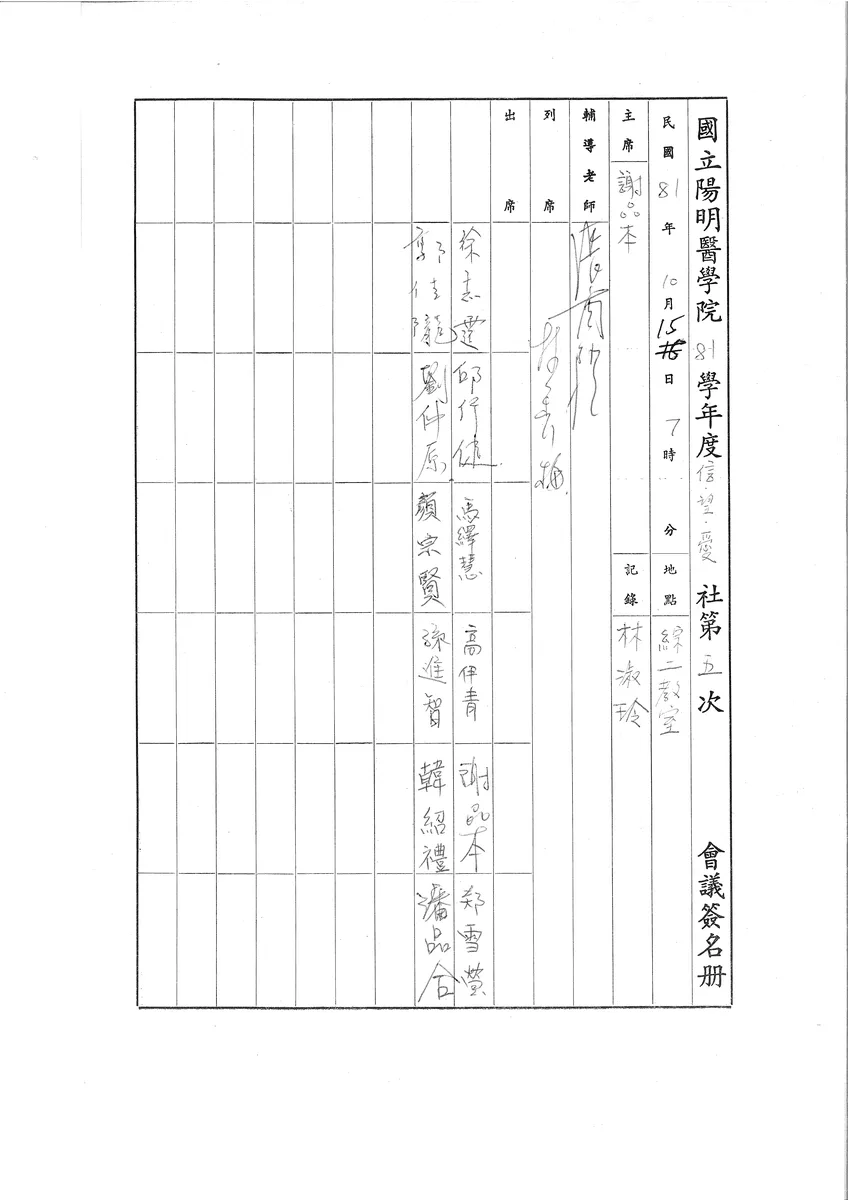 國立陽明醫學院81學年度信.望.愛社第五次 會議簽名册
民國81年10月15日7時 分 地點 綜二教室
主席 謝品本 記錄 林淑玲
輔導老師
列席
出席
徐志 邱行健 馬繹慧 高伊青 謝品本 郑雪螢
郭佳隴 劉仲原 顏宗賢 孫進智 韓紹禮 潘品合